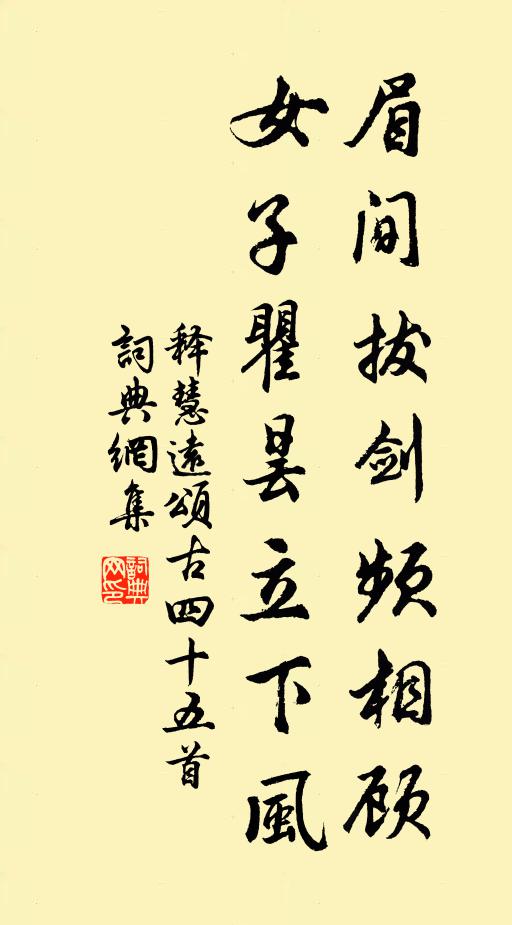 眉间拔剑频相顾
女子瞿昙立下風
释慧遠頌古四十五首
詞典網集
詞典网印